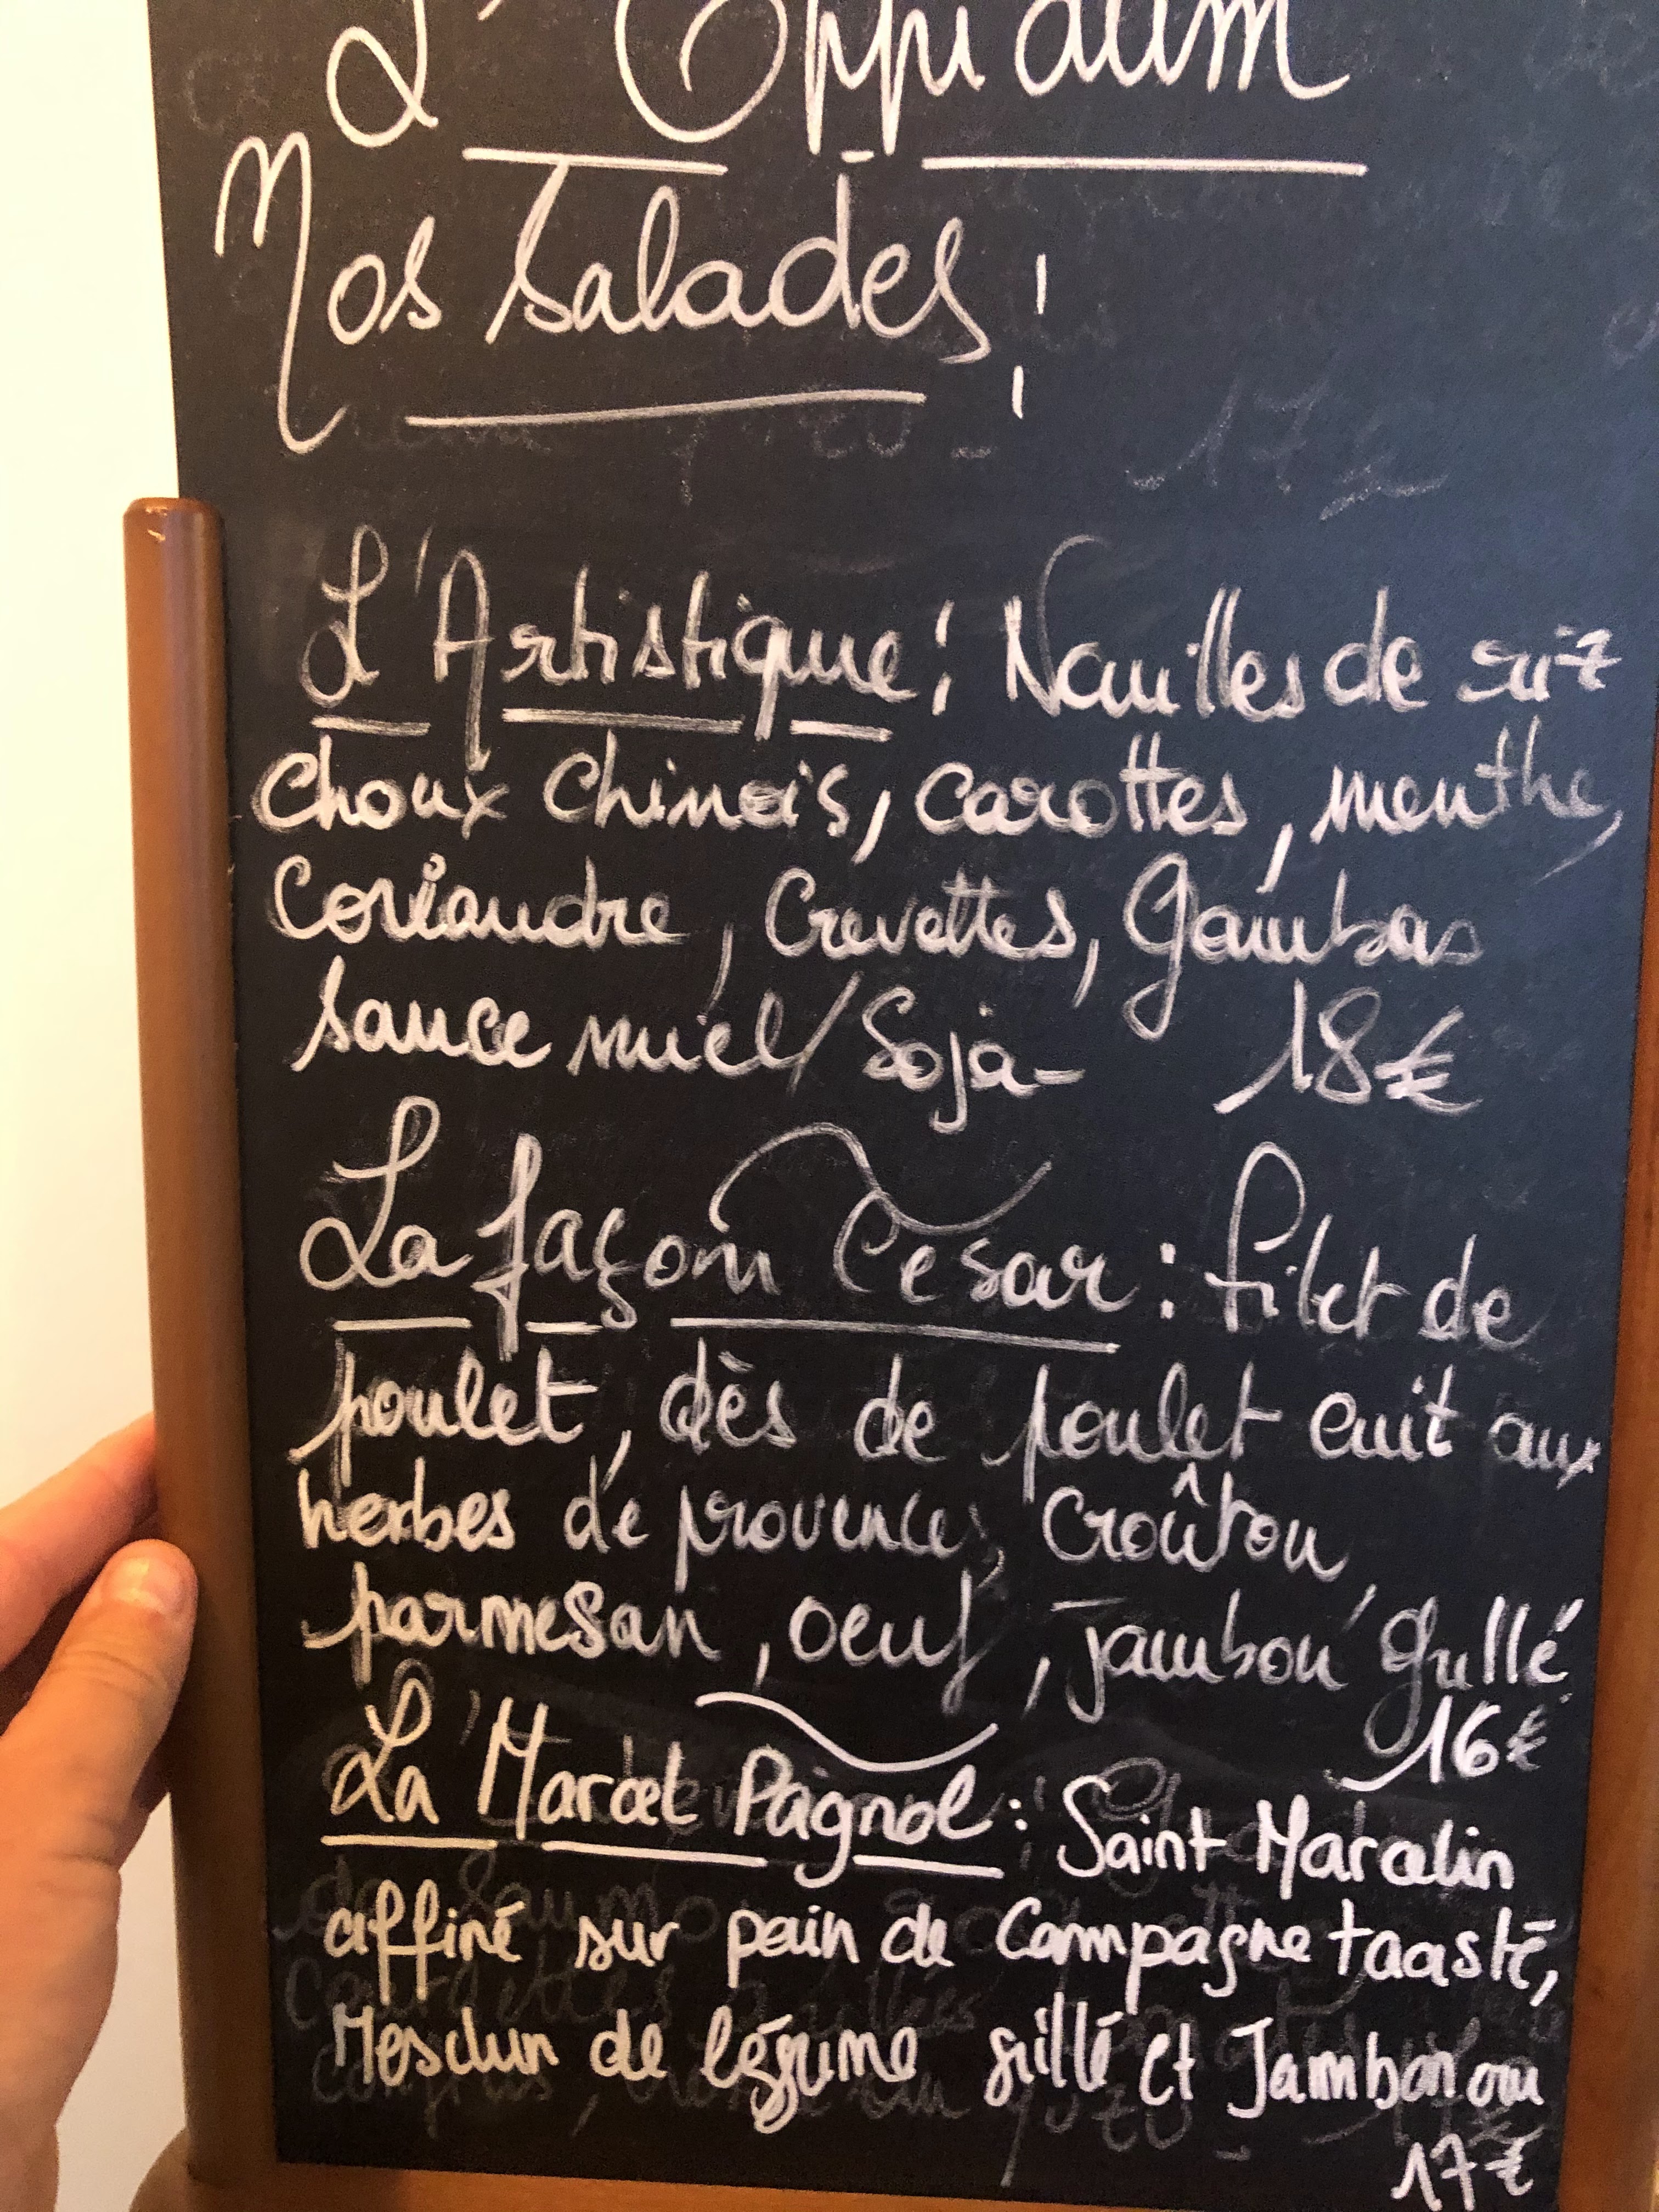 L'Oppidum
Nos Salades :
L'Artistique : Nouilles de riz
choux chinois, carottes, menthe,
Coriandre, Crevettes, Gambas
sauce miel/Soja- 18€
La façon César : filet de
poulet, dès de poulet cuit aux
herbes de provence, Croûton,
parmesan, oeuf, jambon grillé
16€
La Marcel Pagnol : Saint Marcelin
affiné sur pain de Campagne toasté,
Mesclun de légume grillé et Jambon cru
17€